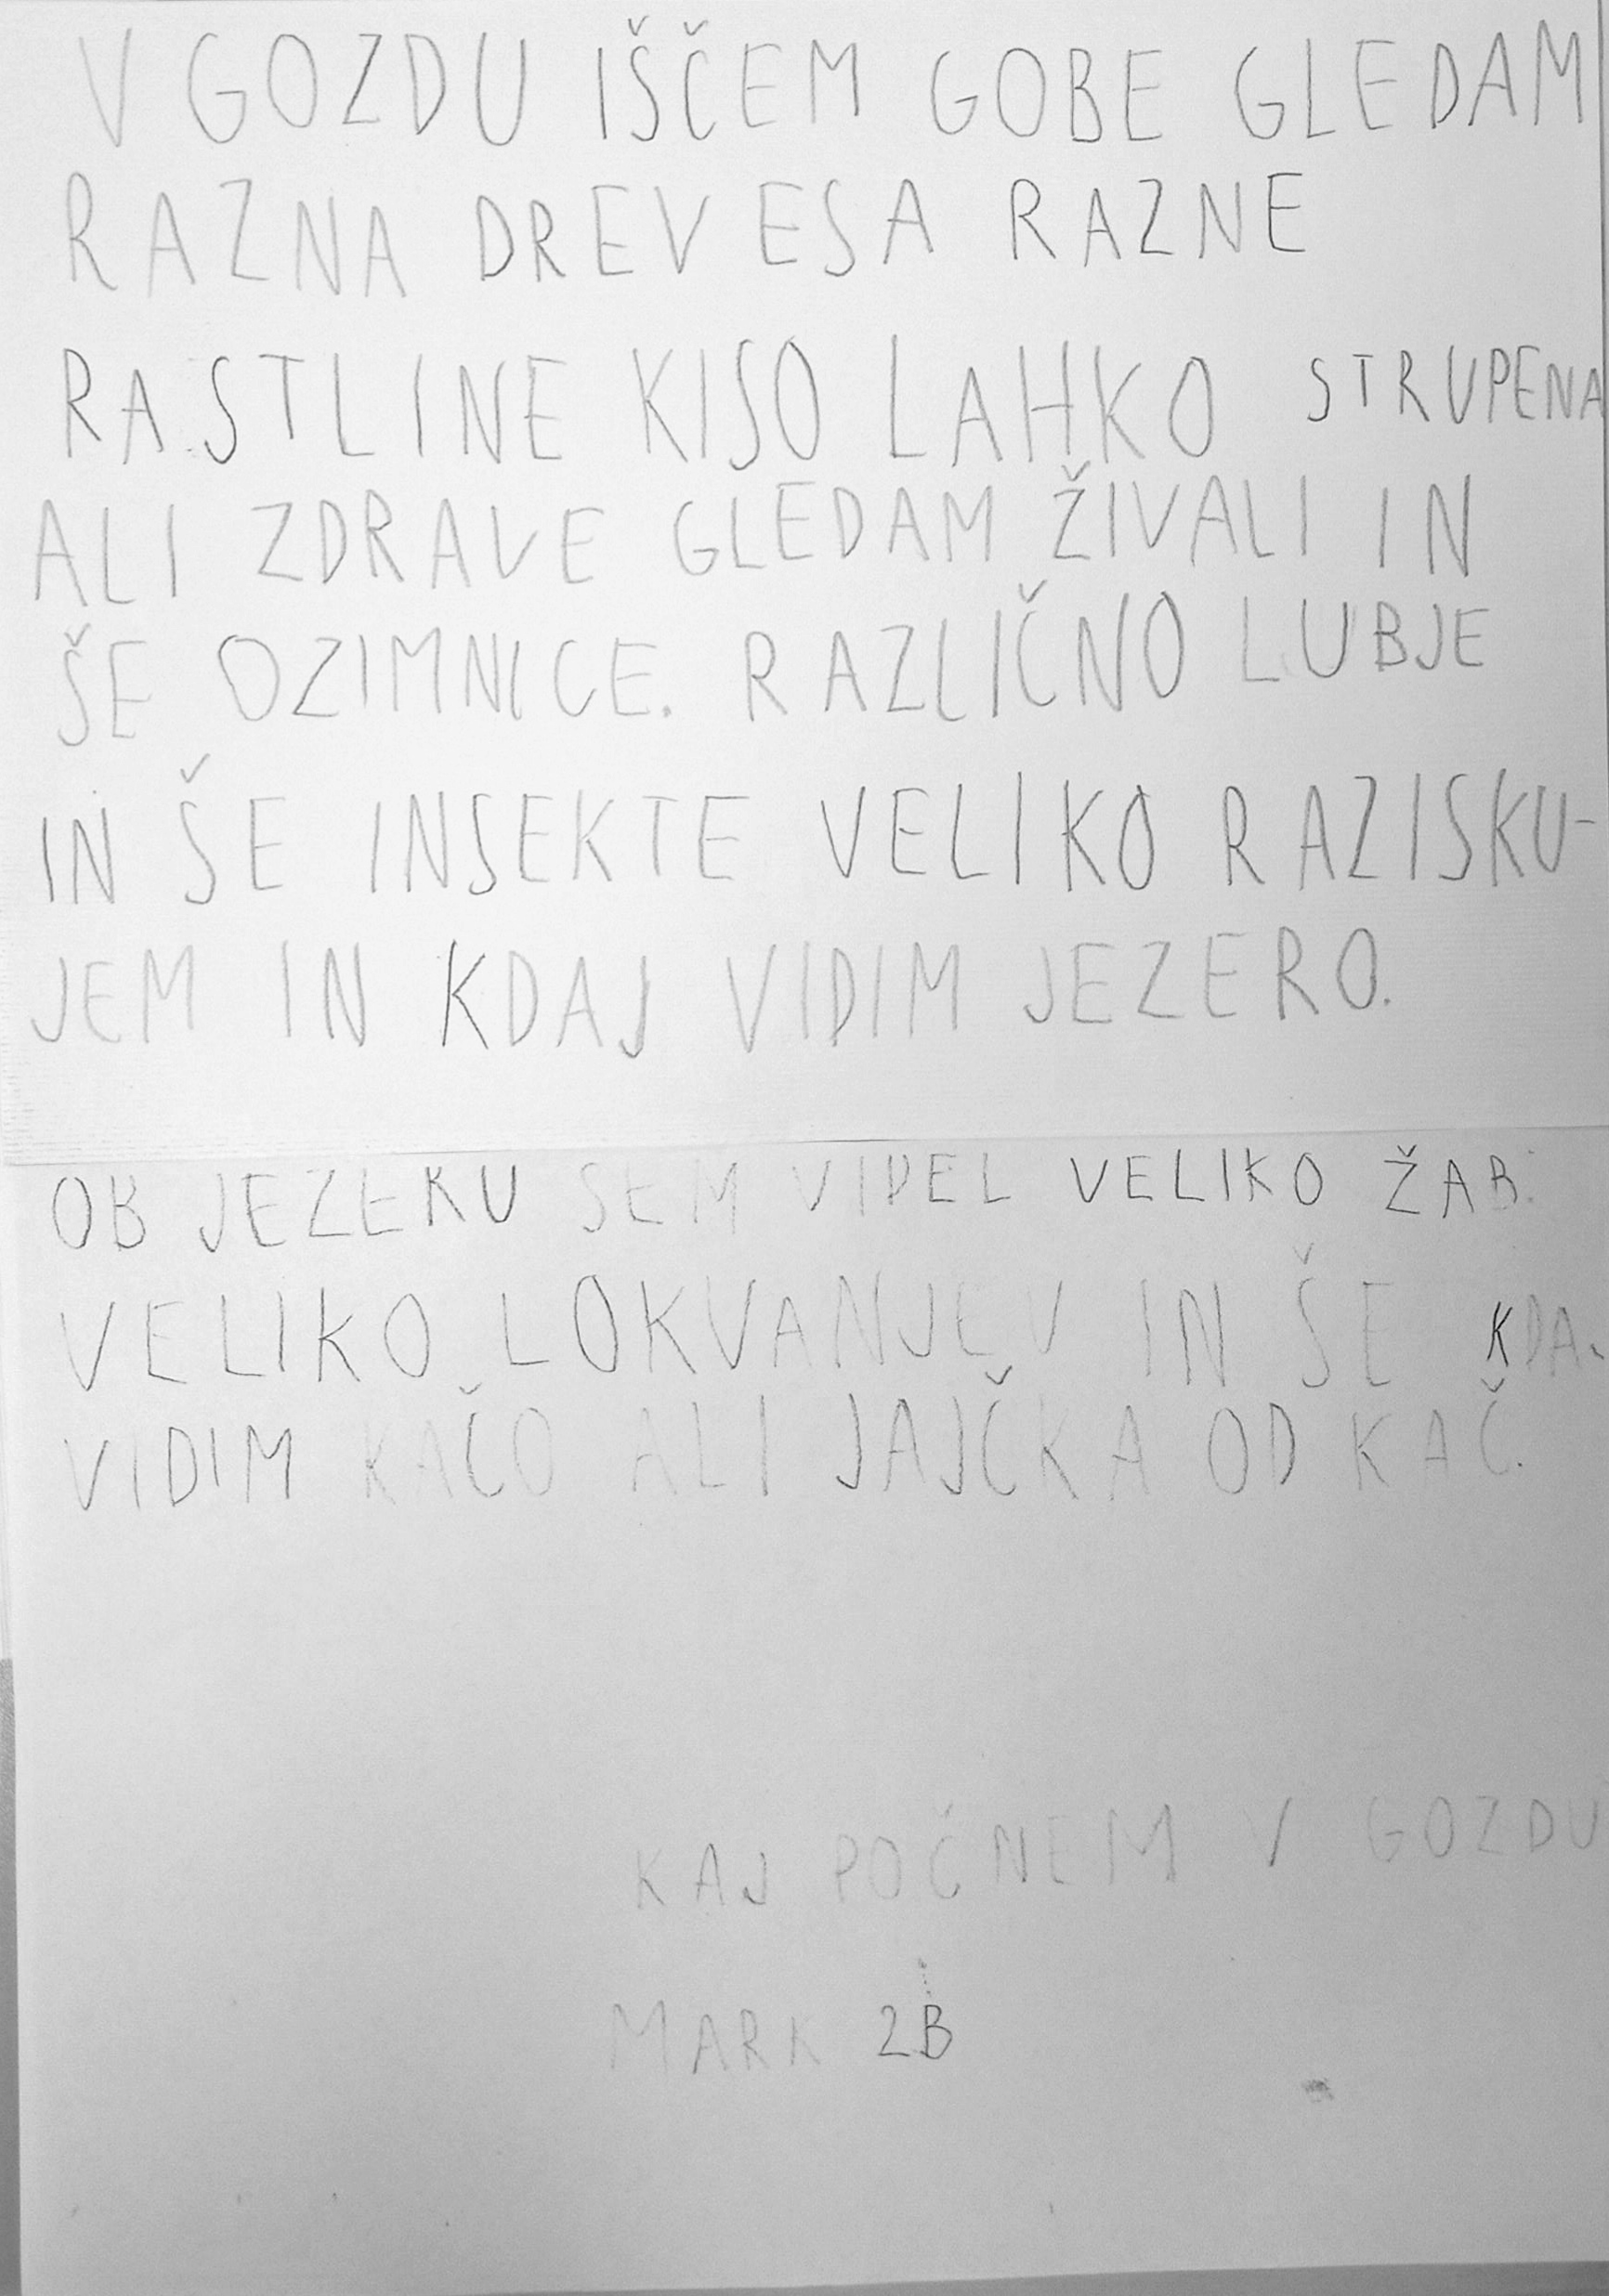 V GOZDU IŠČEM GOBE GLEDAM
RAZNA DREVESA RAZNE
RASTLINE KISO LAHKO STRUPENA
ALI ZDRAVE GLEDAM ŽIVALI IN
ŠE OZIMNICE. RAZLIČNO LUBJE
IN ŠE INSEKTE VELIKO RAZISKU-
JEM IN KDAJ VIDIM JEZERO.
OB JEZERU SEM VIDEL VELIKO ŽAB.
VELIKO LOKVANJEV IN ŠE
VIDIM KAČO ALI JAJČKA OD KAČ.
KAJ POČNEM V GOZDU
MARK 2B